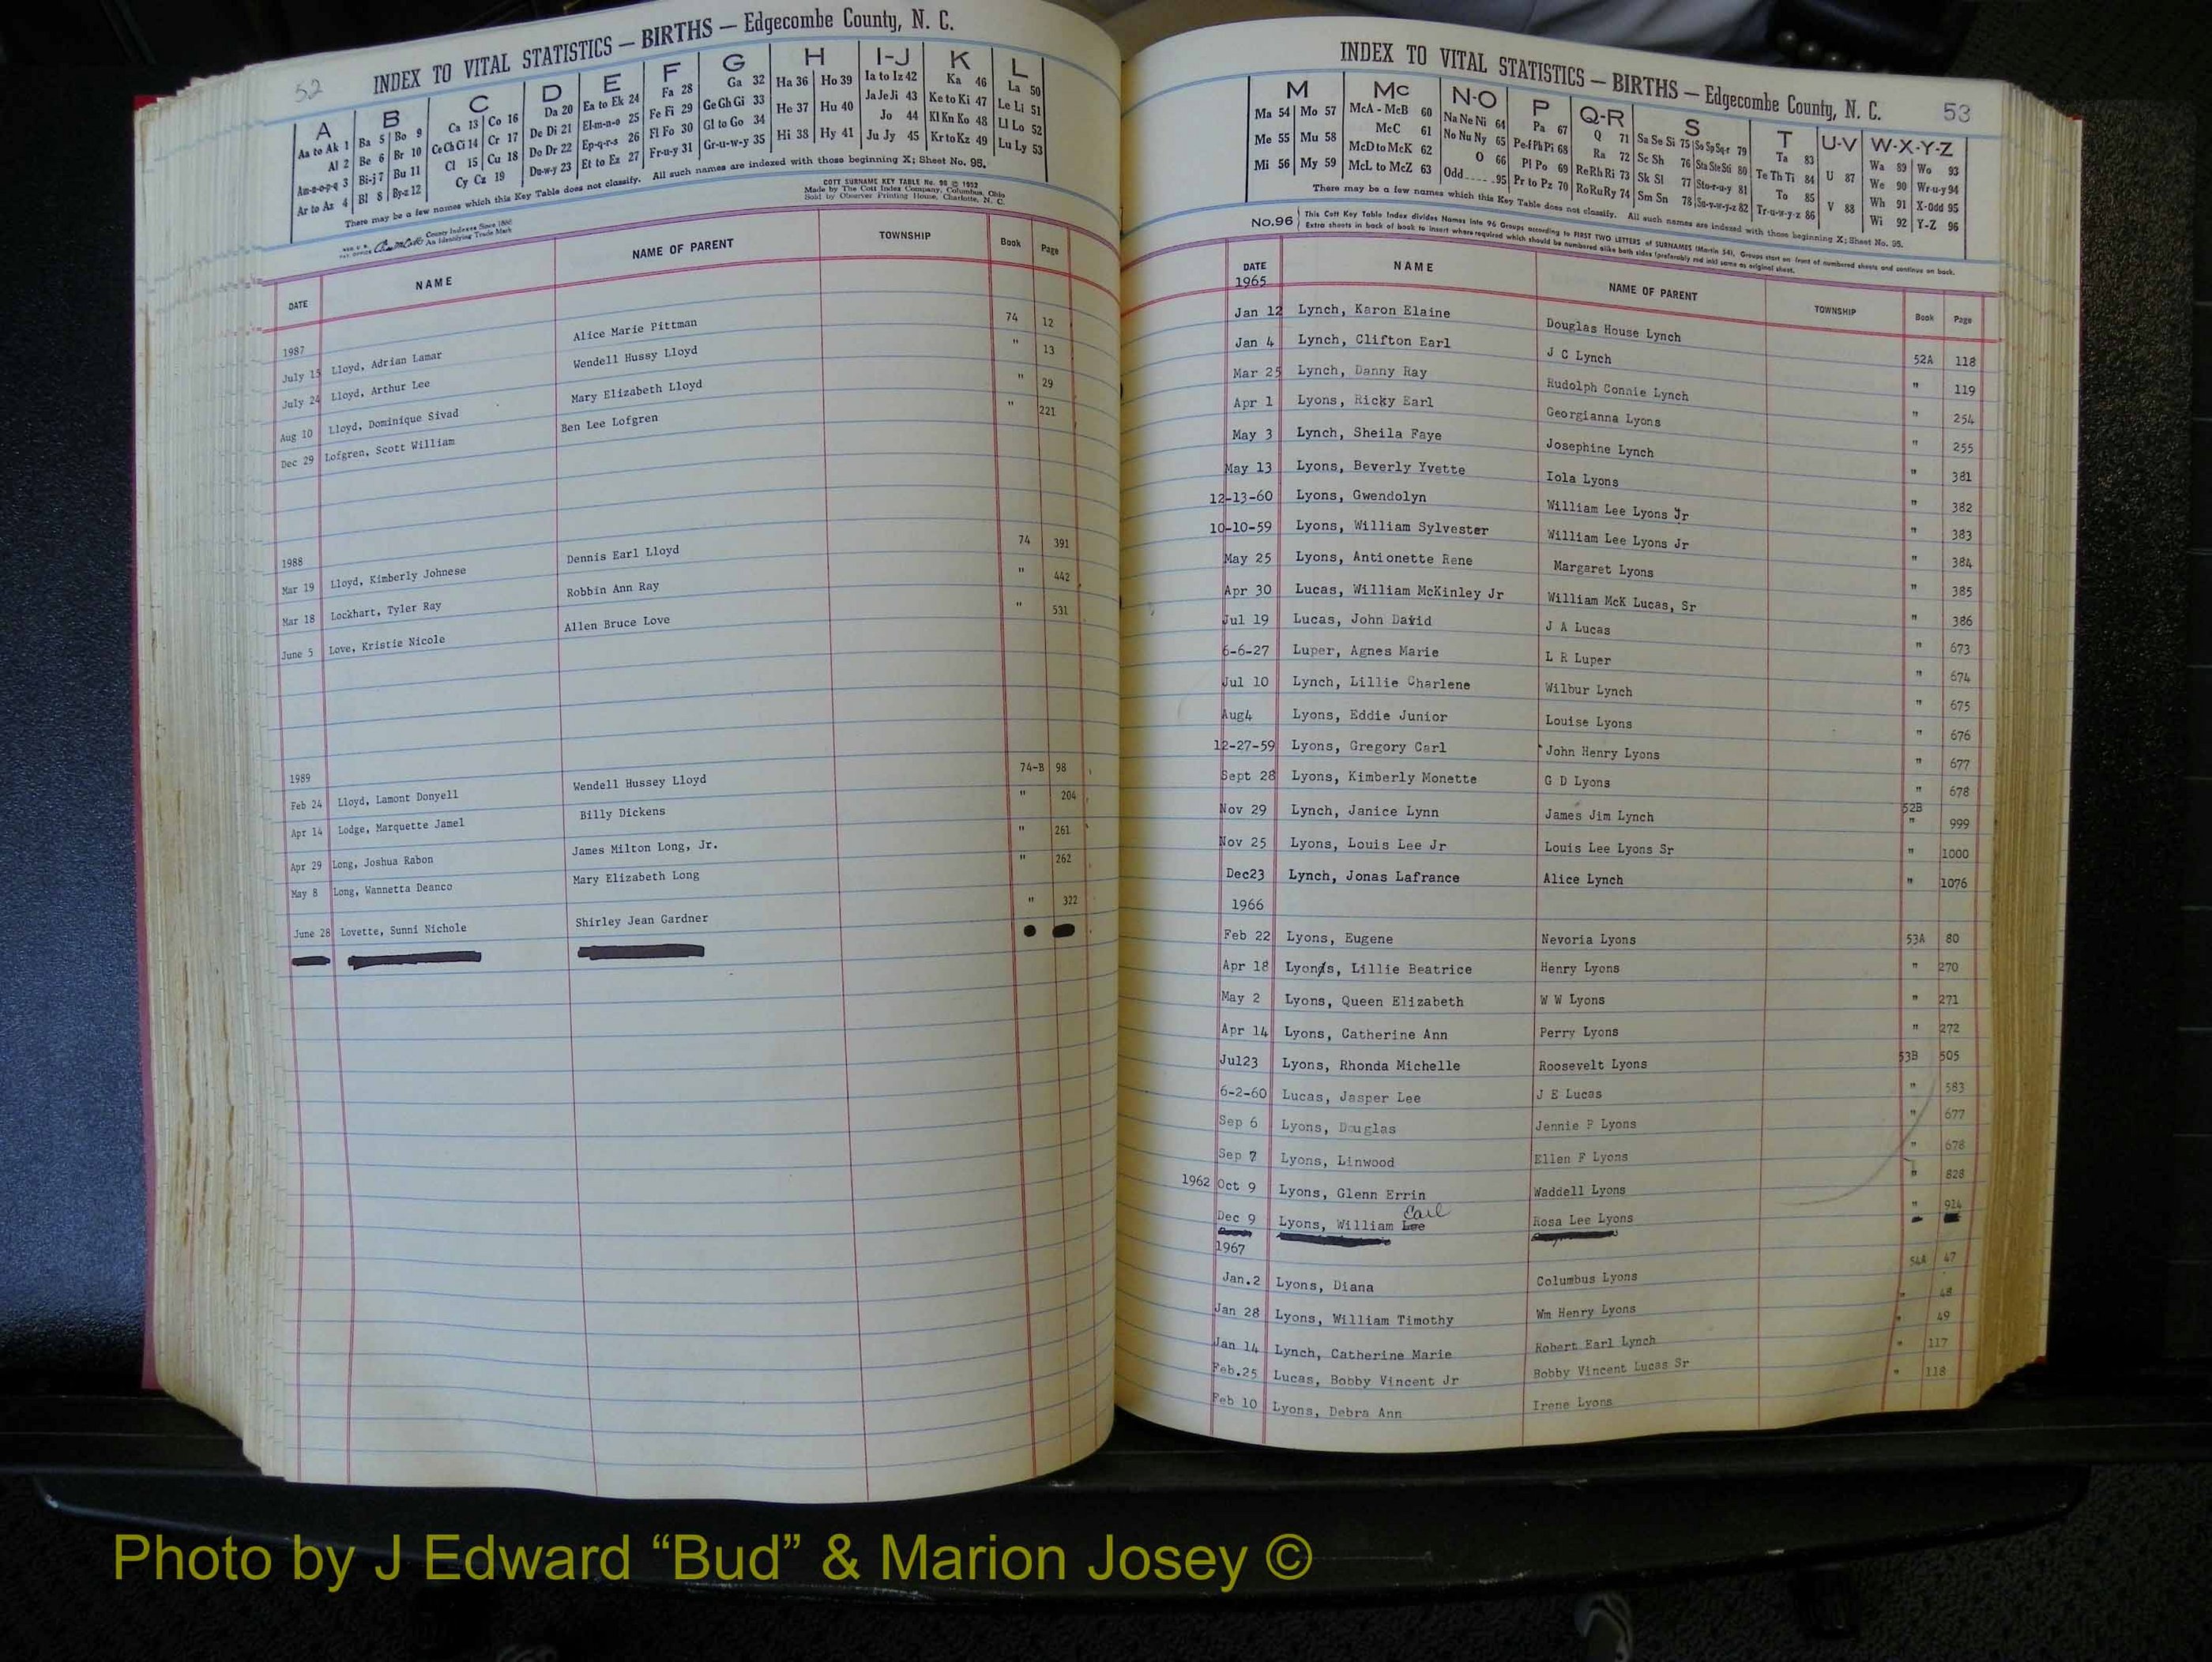 52
INDEX TO VITAL STATISTICS — BIRTHS — Edgecombe County, N. C.
A B C D E F G H I-J K L
Aa to Ak 1 Ba 5 Bo 9 Ca 13 Co 16 Da 20 Ea to Ek 24 Fa 28 Ga 32 Ha 36 Ho 39 Ia to Iz 42 Ka 46 La 50
Al 2 Be 6 Br 10 Ce Ch Ci 14 Cr 17 De Di 21 El-m-n-o 25 Fe Fi 29 Ge Gh Gi 33 He 37 Hu 40 Ja Je Ji 43 Ke to Ki 47 Le Li 51
Am-n-o-p-q 3 Bi-j 7 Bu 11 Cl 15 Cu 18 Do Dr 22 Ep-q-r-s 26 Fl Fo 30 Gl to Go 34 Hi 38 Hy 41 Jo 44 Kl Kn Ko 48 Ll Lo 52
Ar to Az 4 Bl 8 By-z 12 Cy Cz 19 Du-w-y 23 Et to Ez 27 Fr-u-y 31 Gr-u-w-y 35 Ju Jy 45 Kr to Kz 49 Lu Ly 53
There may be a few names which this Key Table does not classify. All such names are indexed with those beginning X; Sheet No. 95.
COTT SURNAME KEY TABLE No. 96 © 1952
Made by The Cott Index Company, Columbus, Ohio
Sold by Observer Printing House, Charlotte, N. C.
County Indexes Since 1888
An Identifying Trade Mark
DATE NAME NAME OF PARENT TOWNSHIP Book Page
1987
July 15 Lloyd, Adrian Lamar Alice Marie Pittman 74 12
July 24 Lloyd, Arthur Lee Wendell Hussy Lloyd " 13
Aug 10 Lloyd, Dominique Sivad Mary Elizabeth Lloyd " 29
Dec 29 Lofgren, Scott William Ben Lee Lofgren " 221
1988
Mar 19 Lloyd, Kimberly Johnese Dennis Earl Lloyd 74 391
Mar 18 Lockhart, Tyler Ray Robbin Ann Ray " 442
June 5 Love, Kristie Nicole Allen Bruce Love " 531
1989
Feb 24 Lloyd, Lamont Donyell Wendell Hussey Lloyd 74-B 98
Apr 14 Lodge, Marquette Jamel Billy Dickens " 204
Apr 29 Long, Joshua Rabon James Milton Long, Jr. " 261
May 8 Long, Wannetta Deanco Mary Elizabeth Long " 262
June 28 Lovette, Sunni Nichole Shirley Jean Gardner " 322
INDEX TO VITAL STATISTICS — BIRTHS — Edgecombe County, N. C.
53
M Mc N-O P Q-R S T U-V W-X-Y-Z
Ma 54 Mo 57 McA - McB 60 Na Ne Ni 64 Pa 67 Q 71 Sa Se Si 75 So Sp Sq-r 79 Ta 83 U 87 Wa 89 Wo 93
Me 55 Mu 58 McC 61 No Nu Ny 65 Pe-f Ph Pi 68 Ra 72 Sc Sh 76 Sta Ste Sti 80 Te Th Ti 84 V 88 We 90 Wr-u-y 94
Mi 56 My 59 McD to McK 62 O 66 Pl Po 69 Re Rh Ri 73 Sk Sl 77 Sto-r-u-y 81 To 85 Wh 91 X-Odd 95
McL to McZ 63 Odd 95 Pr to Pz 70 Ro Ru Ry 74 Sm Sn 78 Su-v-w-y-z 82 Tr-u-w-y-z 86 Wi 92 Y-Z 96
There may be a few names which this Key Table does not classify. All such names are indexed with those beginning X; Sheet No. 95.
No.96 This Cott Key Table Index divides Names into 96 Groups according to FIRST TWO LETTERS of SURNAMES (Martin 54). Groups start on front of numbered sheets and continue on back.
Extra sheets in back of book to insert where required which should be numbered alike both sides (preferably red ink) same as original sheet.
DATE NAME NAME OF PARENT TOWNSHIP Book Page
1965
Jan 12 Lynch, Karon Elaine Douglas House Lynch 52A 118
Jan 4 Lynch, Clifton Earl J C Lynch " 119
Mar 25 Lynch, Danny Ray Rudolph Connie Lynch " 254
Apr 1 Lyons, Ricky Earl Georgianna Lyons " 255
May 3 Lynch, Sheila Faye Josephine Lynch " 381
May 13 Lyons, Beverly Yvette Iola Lyons " 382
12-13-60 Lyons, Gwendolyn William Lee Lyons Jr " 383
10-10-59 Lyons, William Sylvester William Lee Lyons Jr " 384
May 25 Lyons, Antionette Rene Margaret Lyons " 385
Apr 30 Lucas, William McKinley Jr William McK Lucas, Sr " 386
Jul 19 Lucas, John David J A Lucas " 673
6-6-27 Luper, Agnes Marie L R Luper " 674
Jul 10 Lynch, Lillie Charlene Wilbur Lynch " 675
Aug4 Lyons, Eddie Junior Louise Lyons " 676
12-27-59 Lyons, Gregory Carl John Henry Lyons " 677
Sept 28 Lyons, Kimberly Monette G D Lyons " 678
Nov 29 Lynch, Janice Lynn James Jim Lynch 52B " 999
Nov 25 Lyons, Louis Lee Jr Louis Lee Lyons Sr " 1000
Dec23 Lynch, Jonas Lafrance Alice Lynch " 1076
1966
Feb 22 Lyons, Eugene Nevoria Lyons 53A 80
Apr 18 Lyons, Lillie Beatrice Henry Lyons " 270
May 2 Lyons, Queen Elizabeth W W Lyons " 271
Apr 14 Lyons, Catherine Ann Perry Lyons " 272
Jul23 Lyons, Rhonda Michelle Roosevelt Lyons 53B 505
6-2-60 Lucas, Jasper Lee J E Lucas " 583
Sep 6 Lyons, Douglas Jennie P Lyons " 677
Sep 7 Lyons, Linwood Ellen F Lyons " 678
1962 Oct 9 Lyons, Glenn Errin Waddell Lyons " 828
Dec 9 Lyons, William Lee Earl Rosa Lee Lyons " 914
1967
Jan.2 Lyons, Diana Columbus Lyons 54A 47
Jan 28 Lyons, William Timothy Wm Henry Lyons " 48
Jan 14 Lynch, Catherine Marie Robert Earl Lynch " 49
Feb.25 Lucas, Bobby Vincent Jr Bobby Vincent Lucas Sr " 117
Feb 10 Lyons, Debra Ann Irene Lyons " 118
Photo by J Edward “Bud” & Marion Josey ©